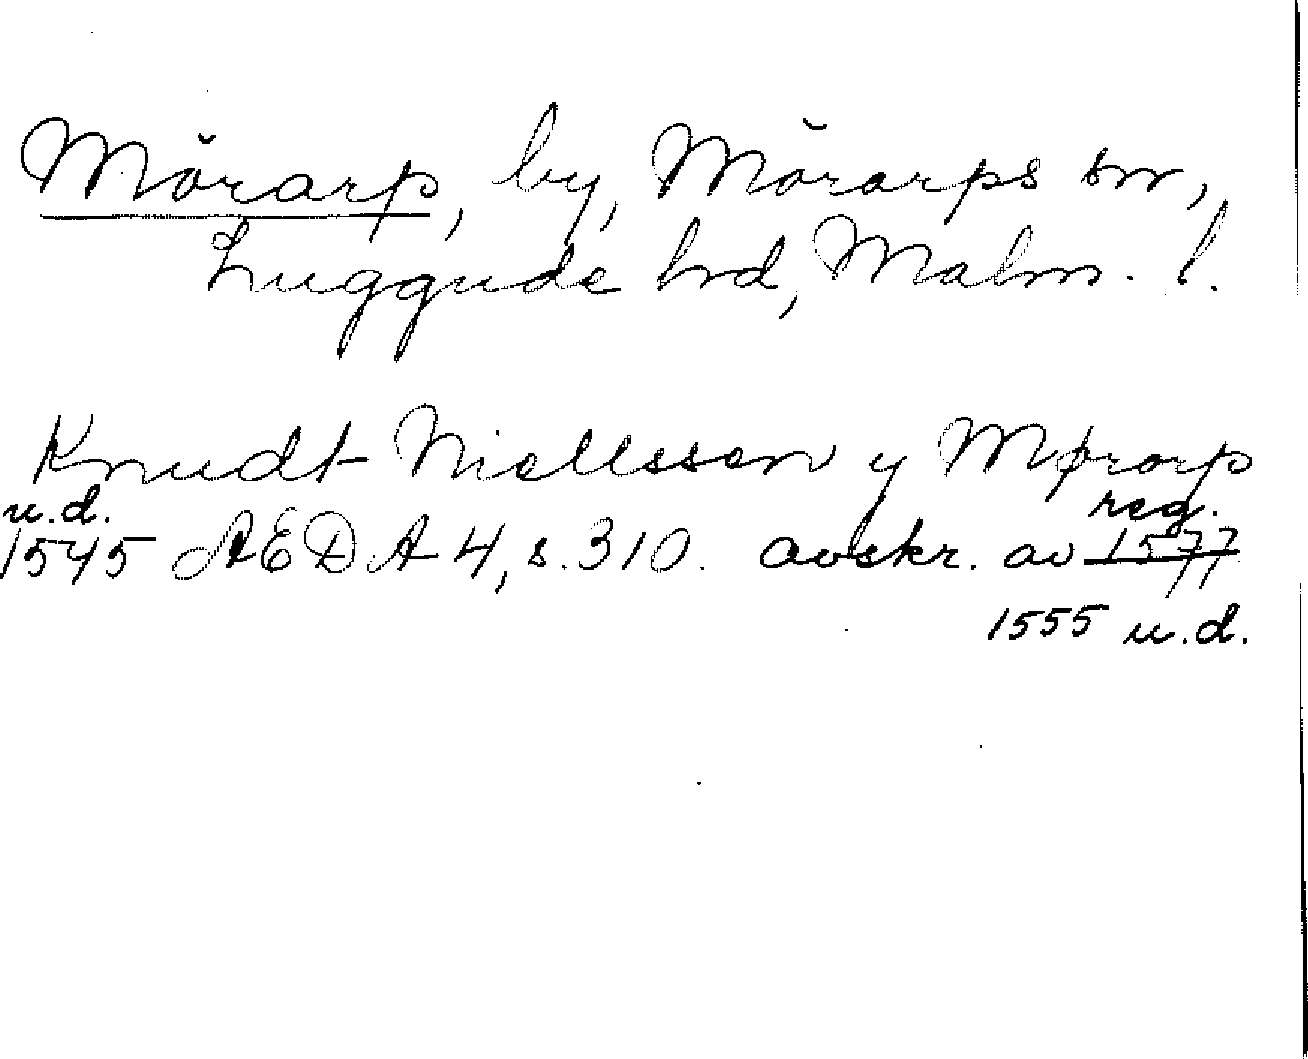 Mörarp, by, Mörarps sn,
Luggude hrd, Malm. l.
Knudt Niellssen y Mørarp
u.d. reg.
1545 AEDA 4, s. 310. avskr. av 1577
1555 u.d.